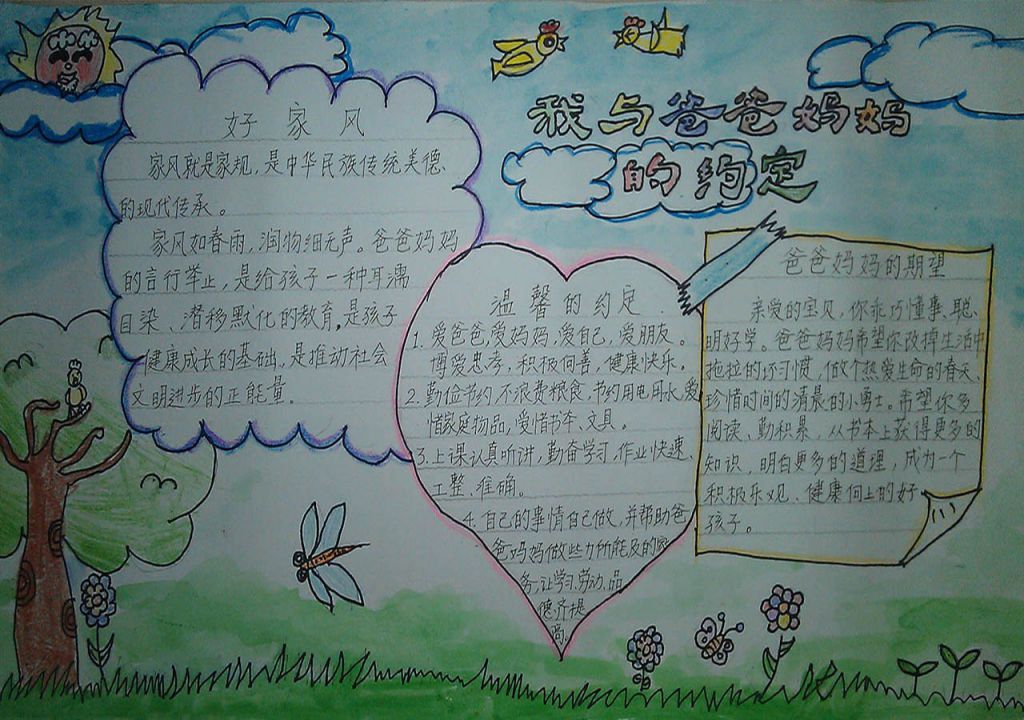 我与爸爸妈妈
的约定
好家风
家风就是家规，是中华民族传统美德
的现代传承。
家风如春雨，润物细无声。爸爸妈妈
的言行举止，是给孩子一种耳濡
目染、潜移默化的教育，是孩子
健康成长的基础，是推动社会
文明进步的正能量。
温馨的约定
1. 爱爸爸，爱妈妈，爱自己，爱朋友。
博爱忠孝，积极向善，健康快乐。
2. 勤俭节约，不浪费粮食，节约用电用水，爱
惜家庭物品，爱惜书本、文具。
3. 上课认真听讲，勤奋学习，作业快速、
工整、准确。
4. 自己的事情自己做，并帮助爸
爸妈妈做些力所能及的家
务，让学习、劳动、品
德齐提
高。
爸爸妈妈的期望
亲爱的宝贝，你乖巧懂事、聪
明好学。爸爸妈妈希望你改掉生活中
拖拉的坏习惯，做个热爱生命的春天、
珍惜时间的清晨的小勇士。希望你多
阅读、勤积累，从书本上获得更多的
知识，明白更多的道理，成为一个
积极乐观、健康向上的好
孩子。